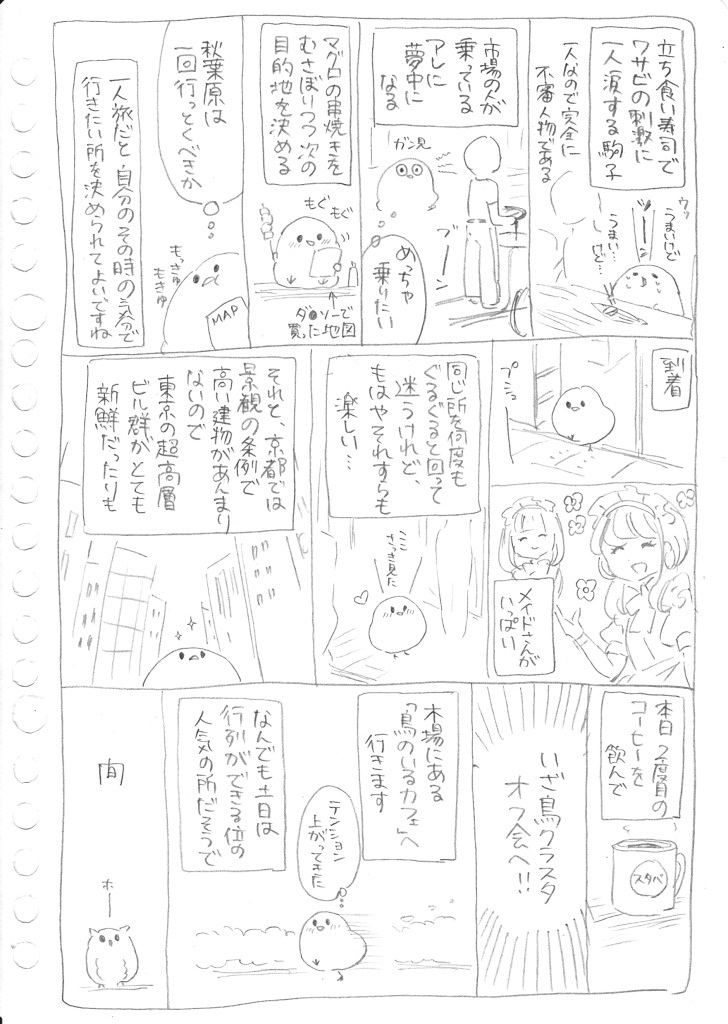 立ち食い寿司で
ワサビの刺激に
一人涙する駒子
一人なので完全に
不審人物である
ウッ
うまいけど
ツーン
うまい…
しけど…
市場の人が
乗っている
アレに
夢中に
なる
ガン見
ブーン
めっちゃ
乗りたい
マグロの串焼きを
むさぼりつつ次の
目的地を決める
もぐ
もぐ
ダ●ソーで
買った地図
秋葉原は
一回行っとくべきか
もっきゅ
もきゅ
MAP
一人旅だと、自分のその時の気分で
行きたい所を決められてよいですね
到着
プシュー
メイドさんが
いっぱい
同じ所を何度も
ぐるぐると回って
迷うけれど、
もはやそれすらも
楽しい…
ここ
さっき見た
それと、京都では
景観の条例で
高い建物があんまり
ないので
東京の超高層
ビル群がとても
新鮮だったりも
本日2度目の
コーヒーを
飲んで
スタバ
いざ鳥クラスタ
オフ会へ!!
木場にある
「鳥のいるカフェ」へ
行きます
テンション
上がってきた
なんでも土日は
行列ができる位の
人気の所だそうで
間
ホー